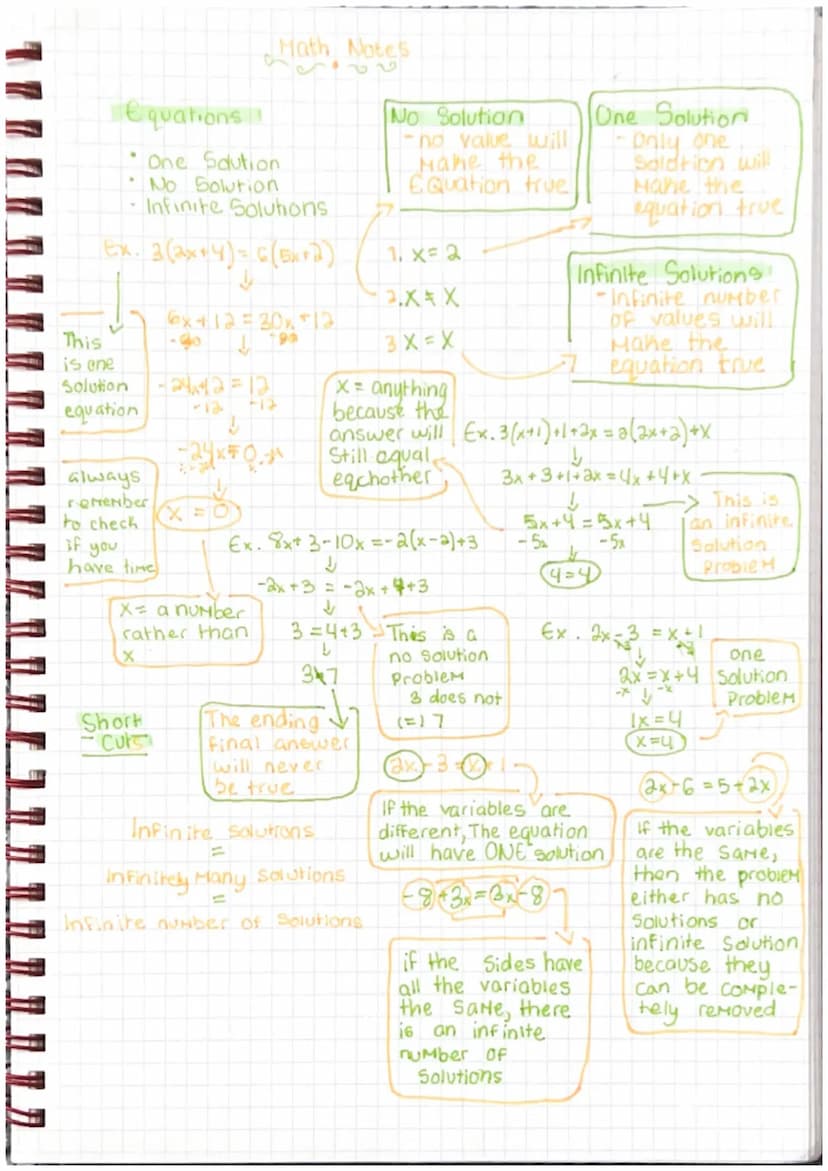 Math Notes
Equations
• One Solution
• No Solution
- Infinite Solutions
No Solution
- no value will
make the
Equation true
One Solution
- Only one
solution will
make the
equation true
1. x = 2
2. x ≠ x
3 x = x
Infinite Solutions
- Infinite number
of values will
make the
equation true
Ex. 3(2x+4) = 6(5x+2)
6x+12 = 30x+12
-24x+12 = 12
-12 -12
-24x = 0
x = 0
This
is one
solution
equation
always
remember
to check
if you
have time
x = a number
rather than
x
x = anything
because the
answer will
Still equal
eachother
Ex. 3(x+1)+1+2x = 2(2x+2)+x
3x+3+1+2x = 4x+4+x
5x+4 = 5x+4
-5x -5x
4=4
This is
an infinite
solution
problem
Ex. 8x+3-10x = -2(x-2)+3
-2x+3 = -2x+4+3
3 = 4+3
3≠7
This is a
no solution
problem
3 does not
(=) 7
The ending
final answer
will never
be true
Ex. 2x-3 = x+1
2x = x+4
-x -x
1x = 4
x=4
one
solution
problem
Short
- Cuts
Infinite solutions
=
Infinitely Many Solutions
=
Infinite number of Solutions
2x-3 = x+1
If the variables are
different, The equation
will have ONE solution
-8+3x=3x-8
if the sides have
all the variables
the same, there
is an infinite
number of
solutions
2x-6 = 5+2x
if the variables
are the same,
then the problem
either has no
solutions or
infinite solution
because they
can be comple-
tely removed